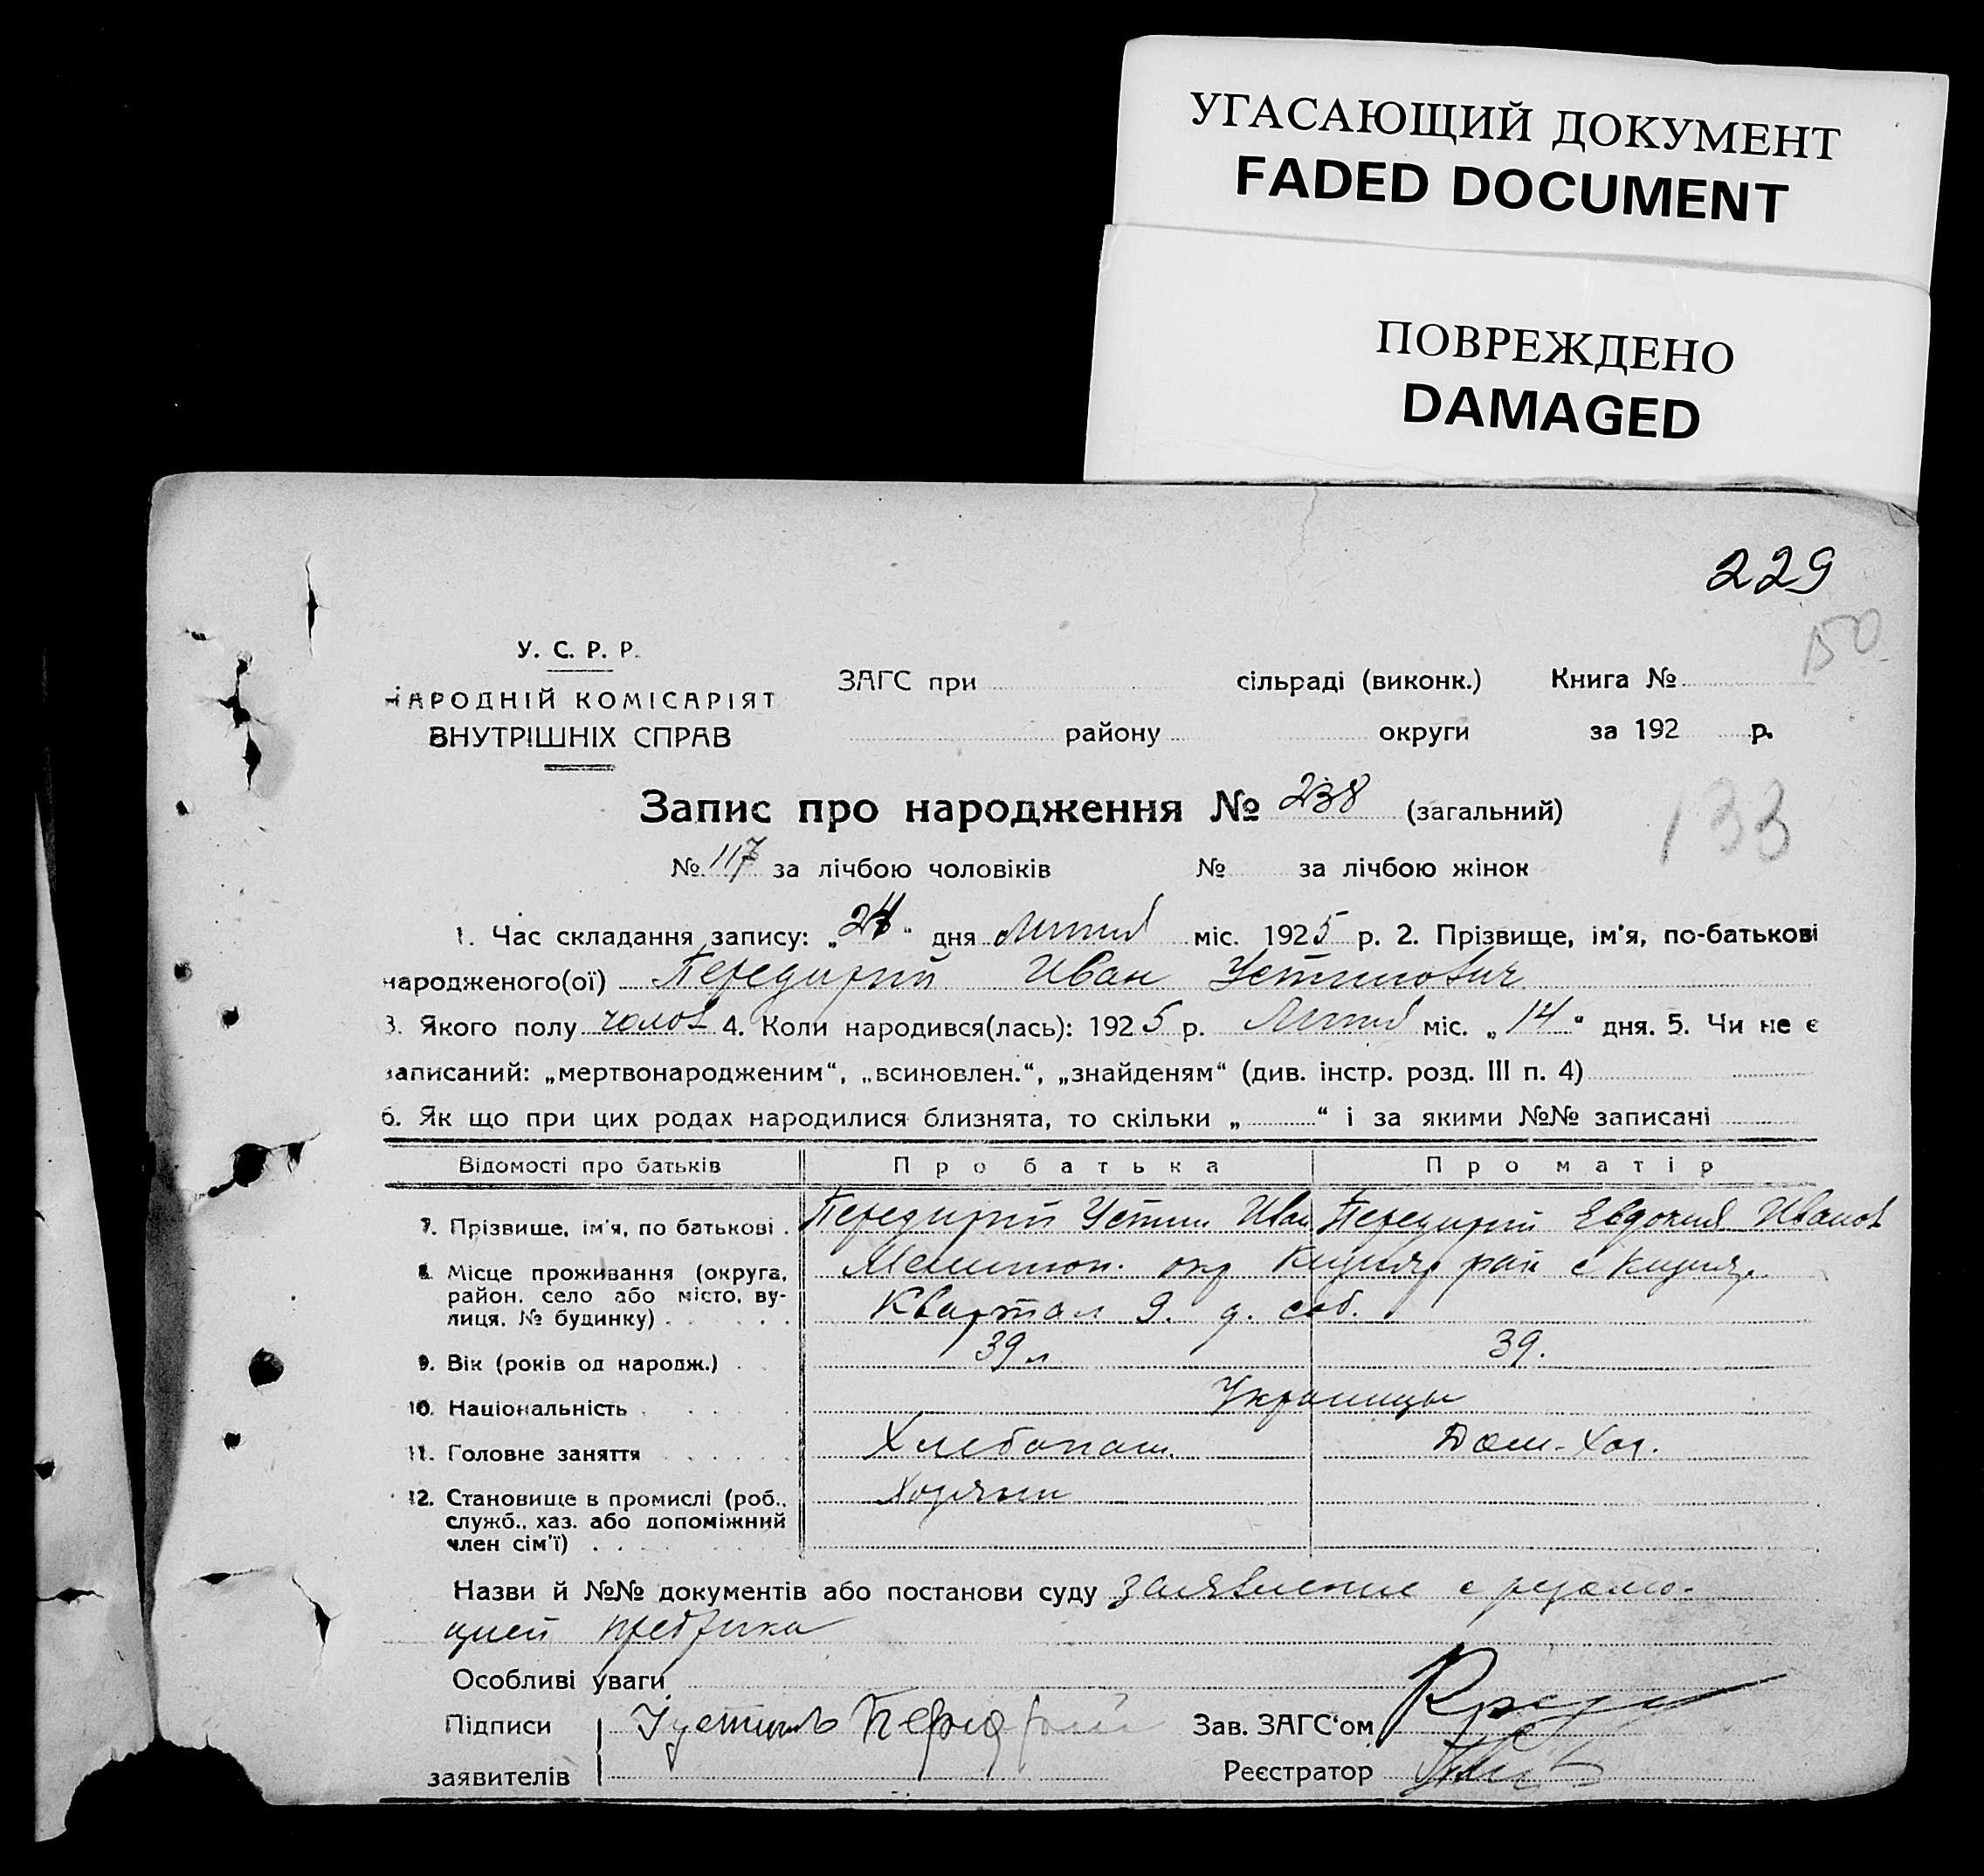 УГАСАЮЩИЙ ДОКУМЕНТ
FADED DOCUMENT
ПОВРЕЖДЕНО
DAMAGED
229
150
У. С. Р. Р.
НАРОДНІЙ КОМІСАРІЯТ
ВНУТРІШНІХ СПРАВ
ЗАГС при сільраді (виконк.) Книга №
району округи за 192 р.
Запис про народження № 238 (загальний)
133
№ 117 за лічбою чоловіків № за лічбою жінок
1. Час складання запису: „24“ дня міс. 1925 р. 2. Прізвище, ім'я, по-батькові
народженого(ої) Передирий Иван Устинович
3. Якого полу чолов 4. Коли народився(лась): 1925 р. міс. „14“ дня. 5. Чи не є
записаний: „мертвонародженим“, „всиновлен.“, „знайденям“ (див. інстр. розд. III п. 4)
6. Як що при цих родах народилися близнята, то скільки „ “ і за якими №№ записані
Відомості про батьків Про батька Про матір
7. Прізвище, ім'я, по батькові . Передирий Устин Иван Передирий Евдокия Иванов
8. Місце проживання (округа, район, село або місто, вулиця, № будинку) Мелитоп. окр рай с
Квартал 9. д. соб.
9. Вік (років од народж.) . 39 л 39.
10. Національність Украинцы
11. Головне заняття Хлебопаш. Дом-Хоз.
12. Становище в промислі (роб., Хозяин
служб., хаз. або допоміжний
член сім'ї) . .
Назви й №№ документів або постанови суду заявление с резолю-
цией
Особливі уваги
Підписи Зав. ЗАГС‘ом
заявителів Реєстратор